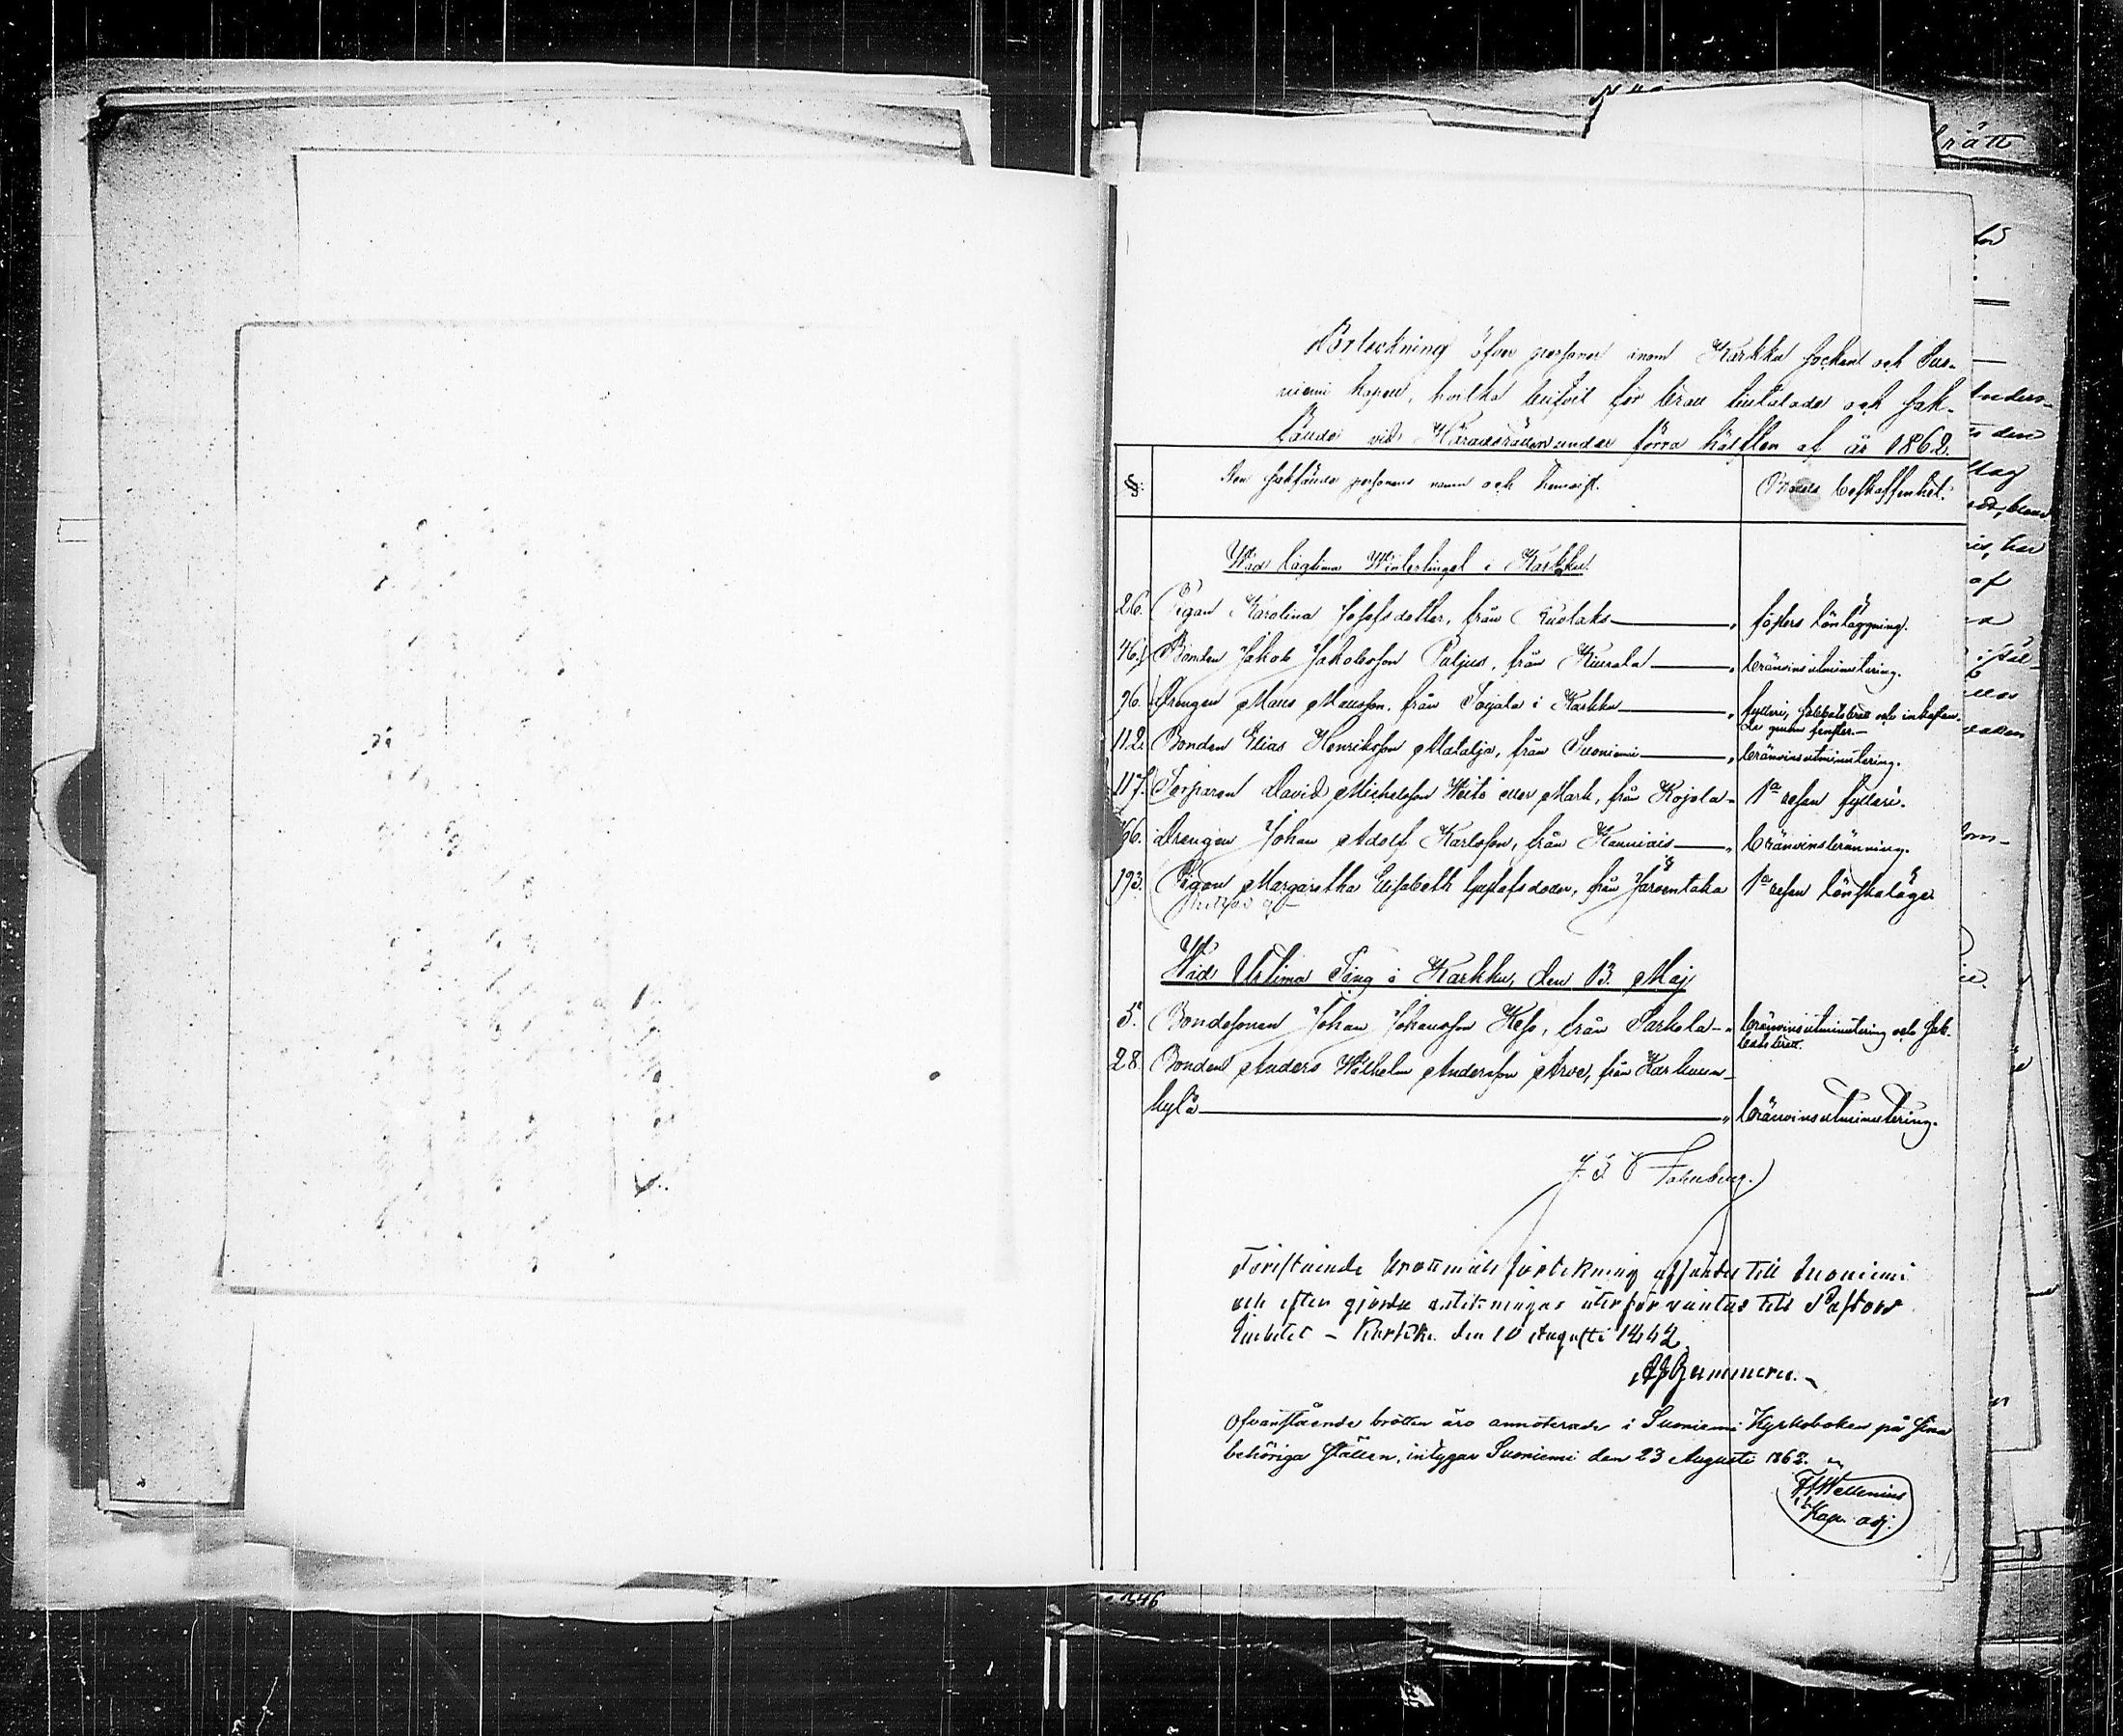 Förteckning öfver personer inom Karkku socken och Suo-
niemi kapell, hvilka blifvit för brott tilltalade och sak-
fällde vid Häradsrätten under förra hälften af år 1862.
§. Den sakfällde personens namn och hemvist. Brottets beskaffenhet.
Wid lagtima Wintertinget i Karkku
26. Pigan Karolina Josefsdotter, från Kuolaks " fosters lönläggning.
46. Bonden Jakob Jakobsson Paljus, från Kiurala " bränvinsutminutering.
76. Drengen Mats Matsson, från Toijala i Karkku " fylleri, sabbatsbrott och inkastan-
de genom fenster.
112. Bonden Elias Henriksson Matalja, från Suoniemi " bränvinsutminutering.
117. Torparen David Michelsson Weits eller Mark, från Kojola " 1a resan fylleri.
166. Drengen Johan Adolf Karlsson, från Kauniais " bränvinsbränning.
193. Pigan Margaretha Elisabeth Gustafsdotter, från Järventaka 1a resan lönskaläge
Wid Urtima Ting i Karkku, den 13. Maj
5. Bondesonen Johan Johansson Hess, från Sarkola " bränvinsutminutering och sab-
batsbrott.
28. Bonden Anders Wilhelm Andersson Arve, från Karkun-
kylä " bränvinsutminutering.
Fahnberg.
Förestående brottmåls förtekning afsändes till Suoniemi
och efter gjorde antekningar återförväntas till Pastors
Embetet – Karkku den 10 Augusti 1862
Ofvanstående brotten äro annoterade i Suoniemi Kyrkoboken på sina
behöriga ställen, intygar Suoniemi den 23 Augusti 1862.
Wallenius
Kap. adj.
1846